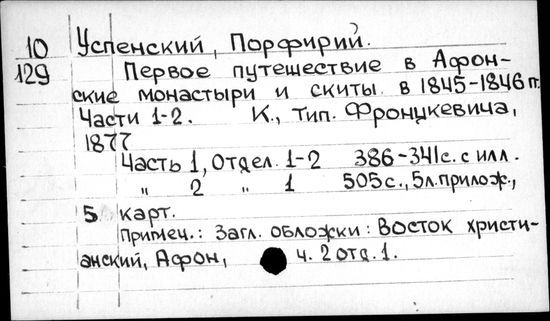 10 Успенский, Порфирий.
129 Первое путешествие в Афон-
ские монастыри и скиты в 1845-1846 гг.
Части 1-2. К., тип. Фронцкевича,
1877
Часть 1, Отдел. 1-2 386-341с. с илл.
" 2 " 1 505с., 5л. прилож.,
5 карт.
Примеч.: Загл. обложки: Восток христи-
анский, Афон, ч. 2 отд. 1.